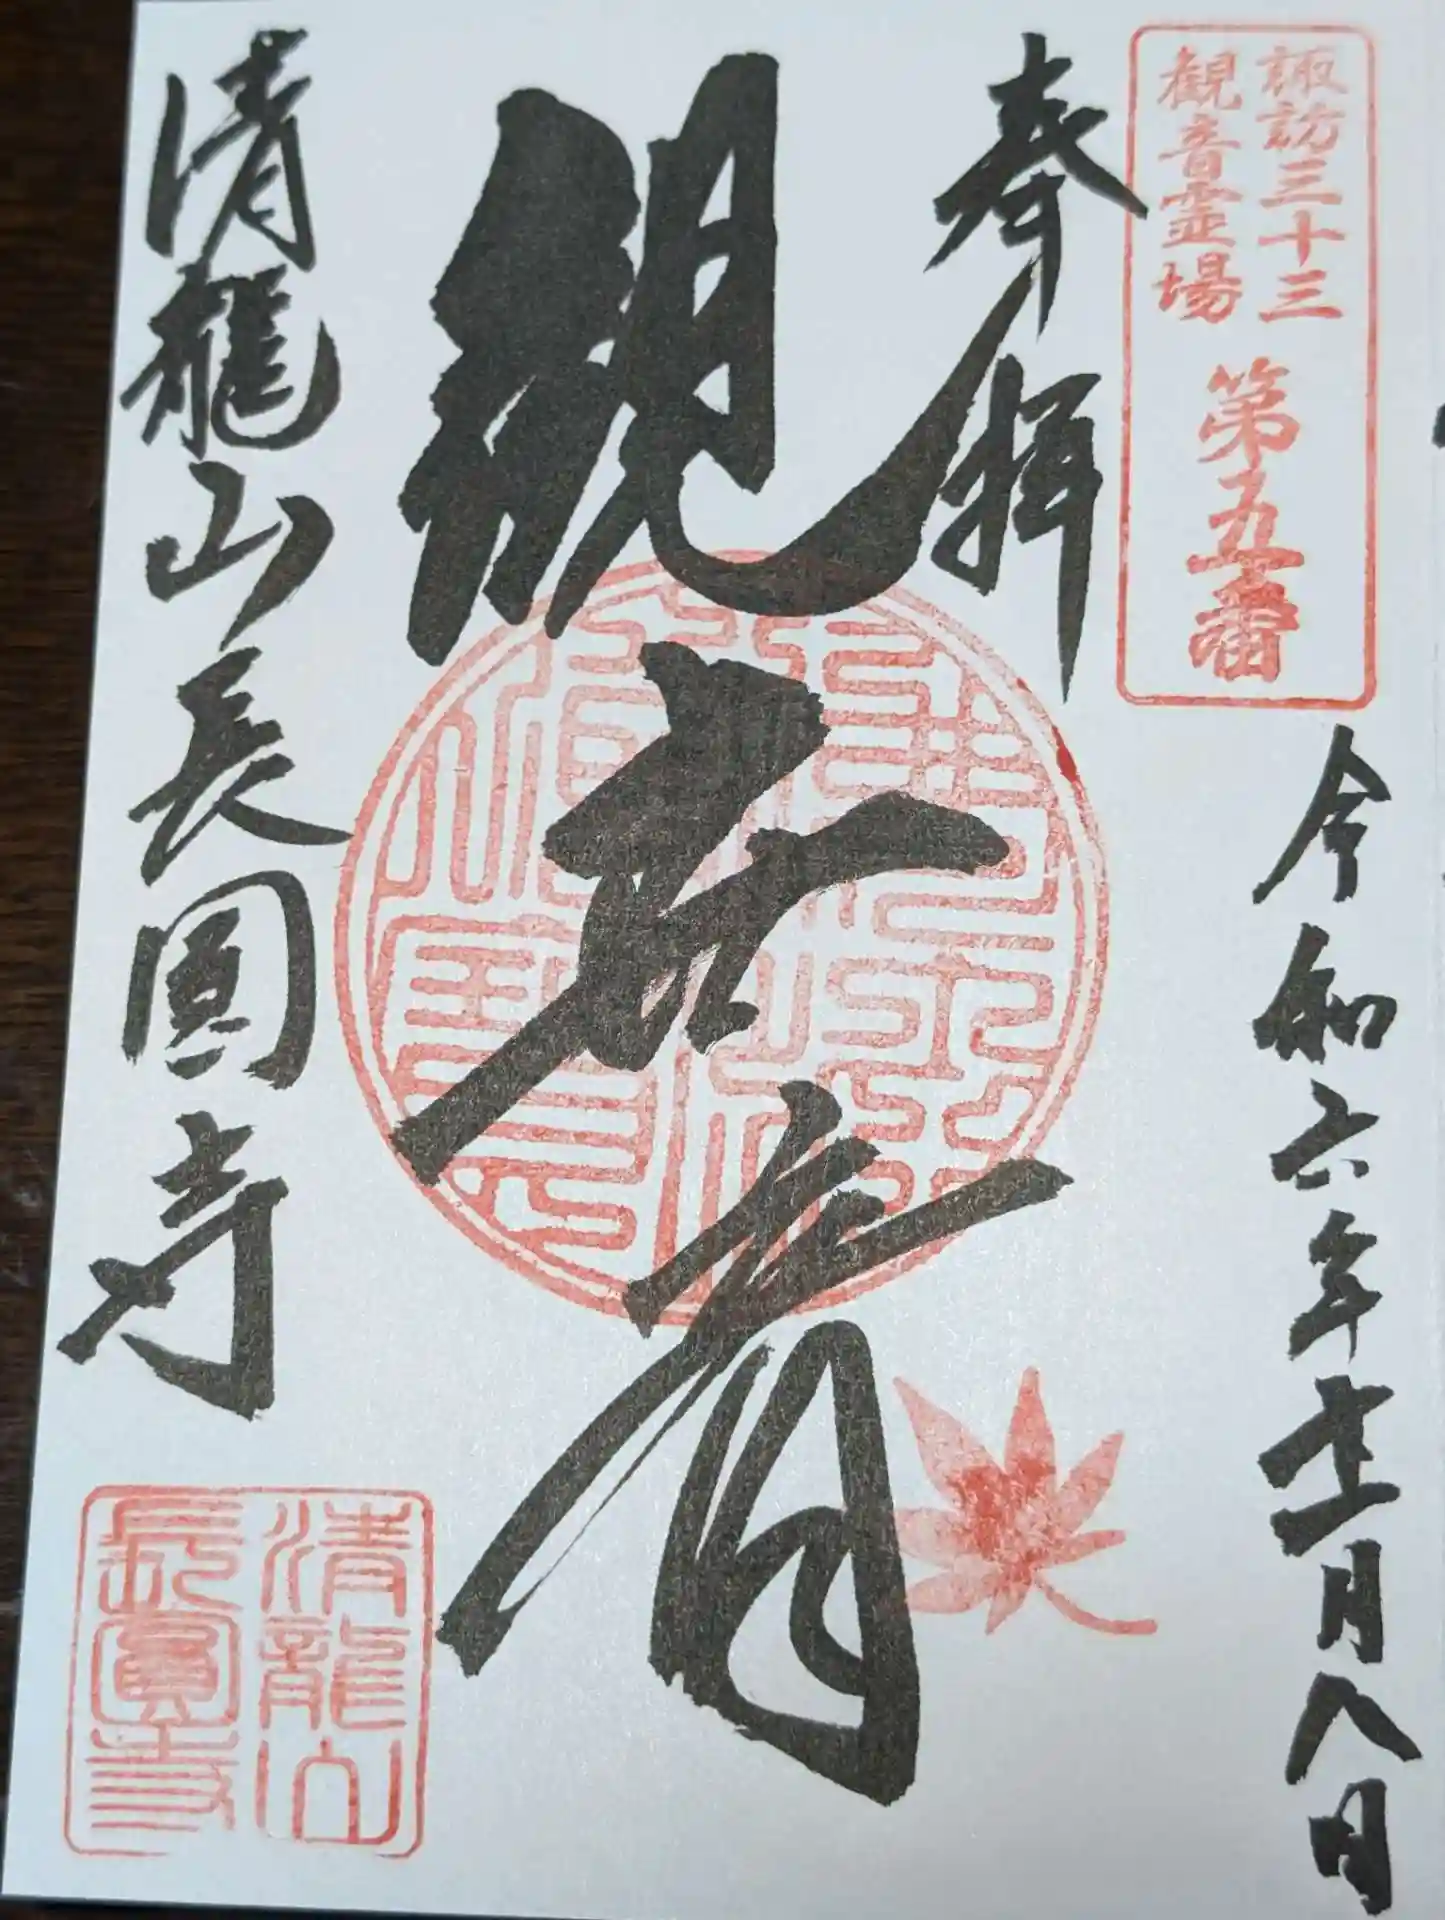 諏訪三十三
観音霊場
第五番
奉拝
令和六年十一月八日
観世音
清龍山長圓寺
清龍山
長圓寺